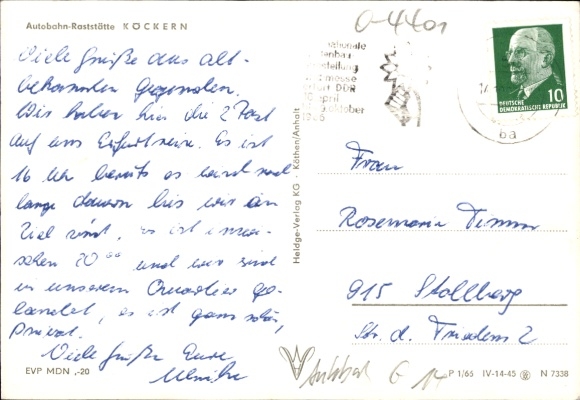 Autobahn-Raststätte KÖCKERN
Viele Grüße aus alt-
bekannten Gegenden.
Wir haben hier die 2 Rast
auf uns Erfurtreise. Es ist
16 Uhr bereits es wird noch
lange dauern bis wir am
Ziel sind, es ist inzwi-
schen 20⁰⁰ und wir sind
in unserem Quartier ge-
landet, es ist ganz schön,
privat.
Viele Grüße Eure
EVP MDN -,20
Heldge-Verlag KG · Köthen/Anhalt
0-4401
nationale
tenbau
stellung
messe
furt DDR
april
Oktober
DEUTSCHE
DEMOKRATISCHE REPUBLIK
10
Frau
Rosemarie Timm
915 Stollberg
Str. d. Friedens 2
G 14
P 1/65 IV-14-45 N 7338